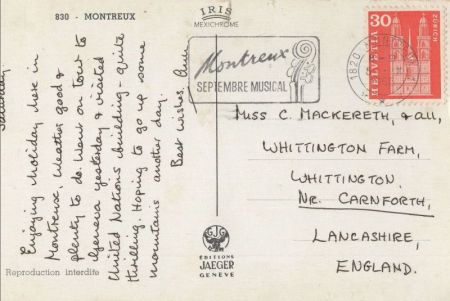 830 - MONTREUX
IRIS
MEXICHROME
Saturday
Enjoying holiday here in
Montreux, Weather good &
plenty to do. Went on tour to
Geneva yesterday & visited
United Nations building - quite
thrilling. Hoping to go up some
mountains another day.
Best wishes,
Montreux
SEPTEMBRE MUSICAL
1820
30
HELVETIA
ZÜRICH
MISS C. MACKERETH, & all,
WHITTINGTON FARM,
WHITTINGTON,
NR. CARNFORTH,
LANCASHIRE,
ENGLAND.
ÉDITIONS
JAEGER
GENÈVE
Reproduction interdite